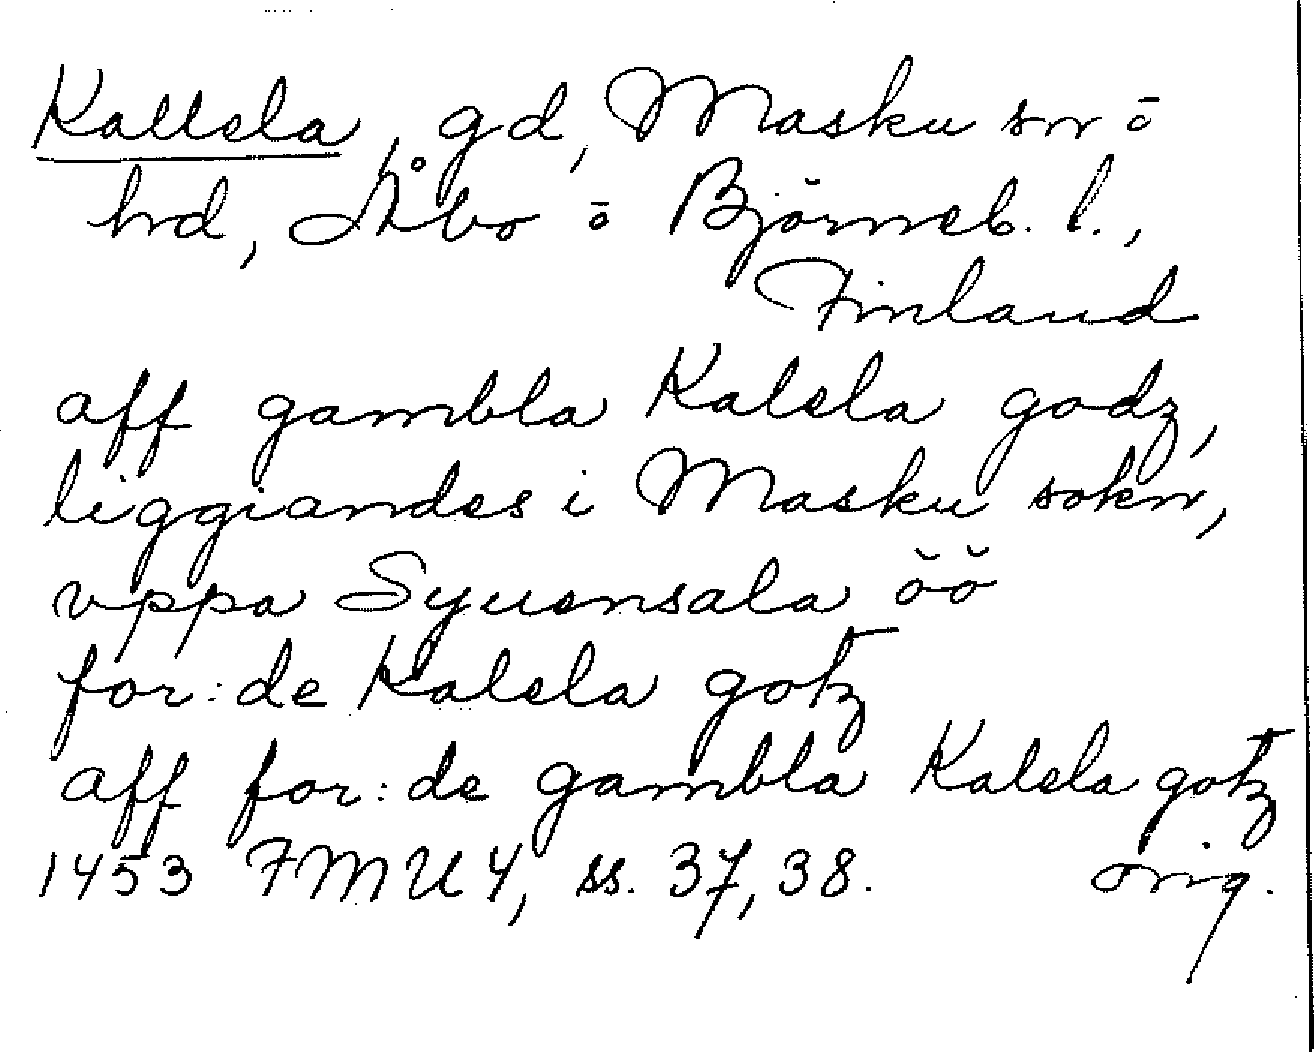 Kallela, gd, Masku sn ō
hd, Åbo ō Björneb. l.,
Finland
aff gambla Kalela godz,
liggiandes i Masku sokn,
vppa Syuensala öö
for:de Kalela gotz
aff for:de gambla Kalela gotz
1453 FMU 4, ss. 37, 38. orig.